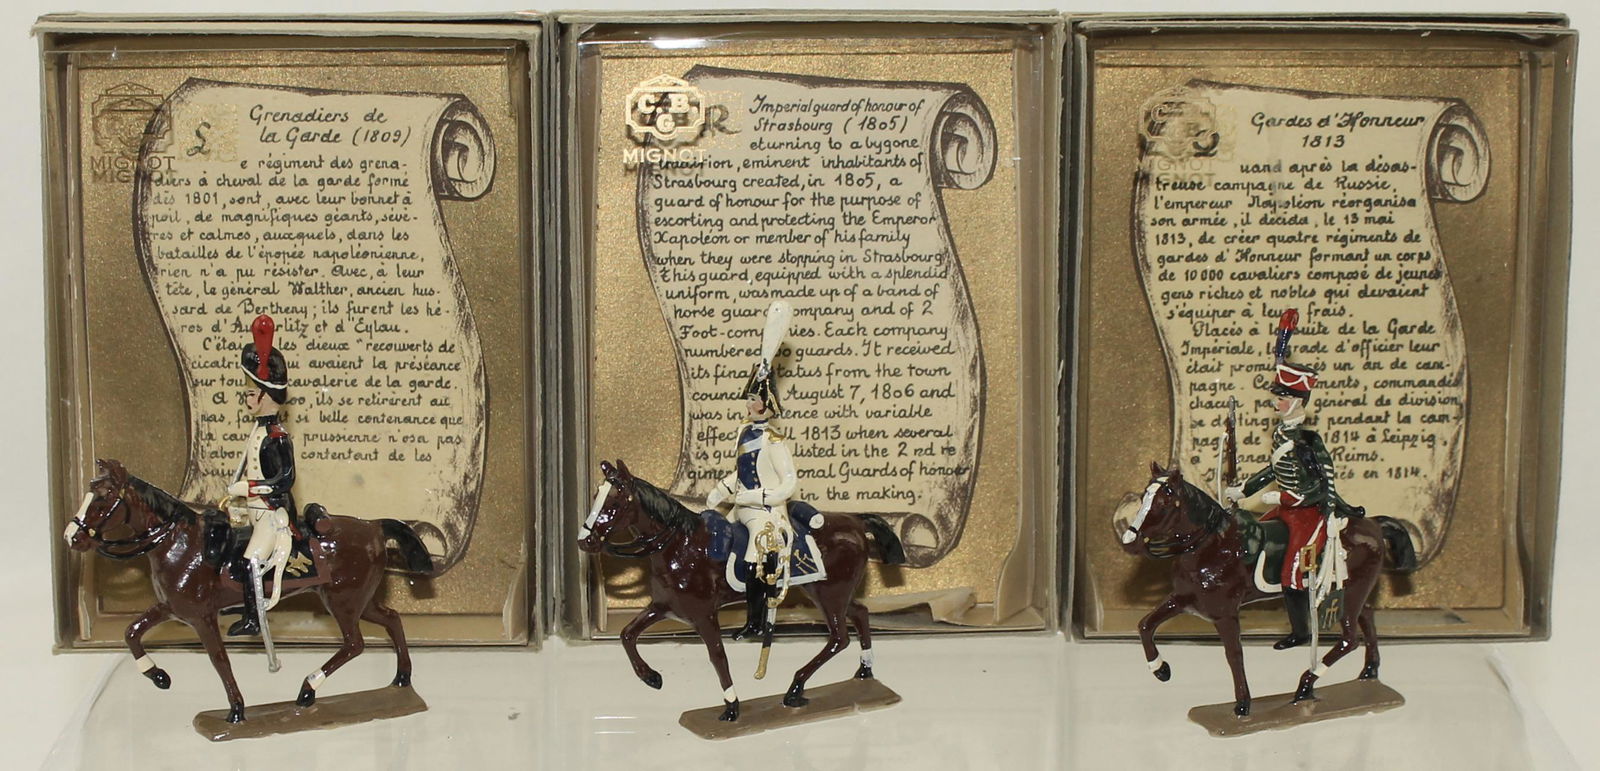 MIGNOT
MIGNOT
Grenadiers de
la Garde (1809)
Le régiment des grena-
diers à cheval de la garde formé
dès 1801, sont, avec leur bonnet à
poil, de magnifiques géants, sévè-
res et calmes, auxquels, dans les
batailles de l'épopée napoléonienne,
rien n'a pu résister. Avec, à leur
tête, le général Walther, ancien hus-
sard de Bertheny; ils furent les hé-
ros d' et d'Eylau.
les "dieux" recouverts de
qui avaient la préséance
sur cavalerie de la garde.
A ils se retirèrent au
pas, si belle contenance que
la prussienne n'osa pas
contentant de les
CBC
MIGNOT
Imperial guard of honour of
Strasbourg (1805)
Returning to a bygone
tradition, eminent inhabitants of
Strasbourg created, in 1805, a
guard of honour for the purpose of
escorting and protecting the Emperor
Napoléon or member of his family
when they were stopping in Strasbourg
this guard, equipped with a splendid
uniform, was made up of a band of
horse guard company and of 2
Foot-companies. Each company
numbered guards. It received
its final status from the town
August 7, 1806 and
was in with variable
1813 when several
listed in the 2nd re
Guards of honour
in the making.
CBC
MIGNOT
Gardes d'Honneur
1813
Quand après la désas-
treuse campagne de Russie,
l'empereur Napoléon réorganisa
son armée, il décida, le 13 mai
1813, de créer quatre régiments de
gardes d'Honneur formant un corps
de 10 000 cavaliers composé de jeunes
gens riches et nobles qui devaient
s'équiper à leurs frais.
Placés à la suite de la Garde
Impériale, le grade d'officier leur
était promis après un an de cam-
pagne. Ces commandés
chacun général de division
se pendant la cam-
de 1814 à Leipzig,
à Reims.
en 1814.